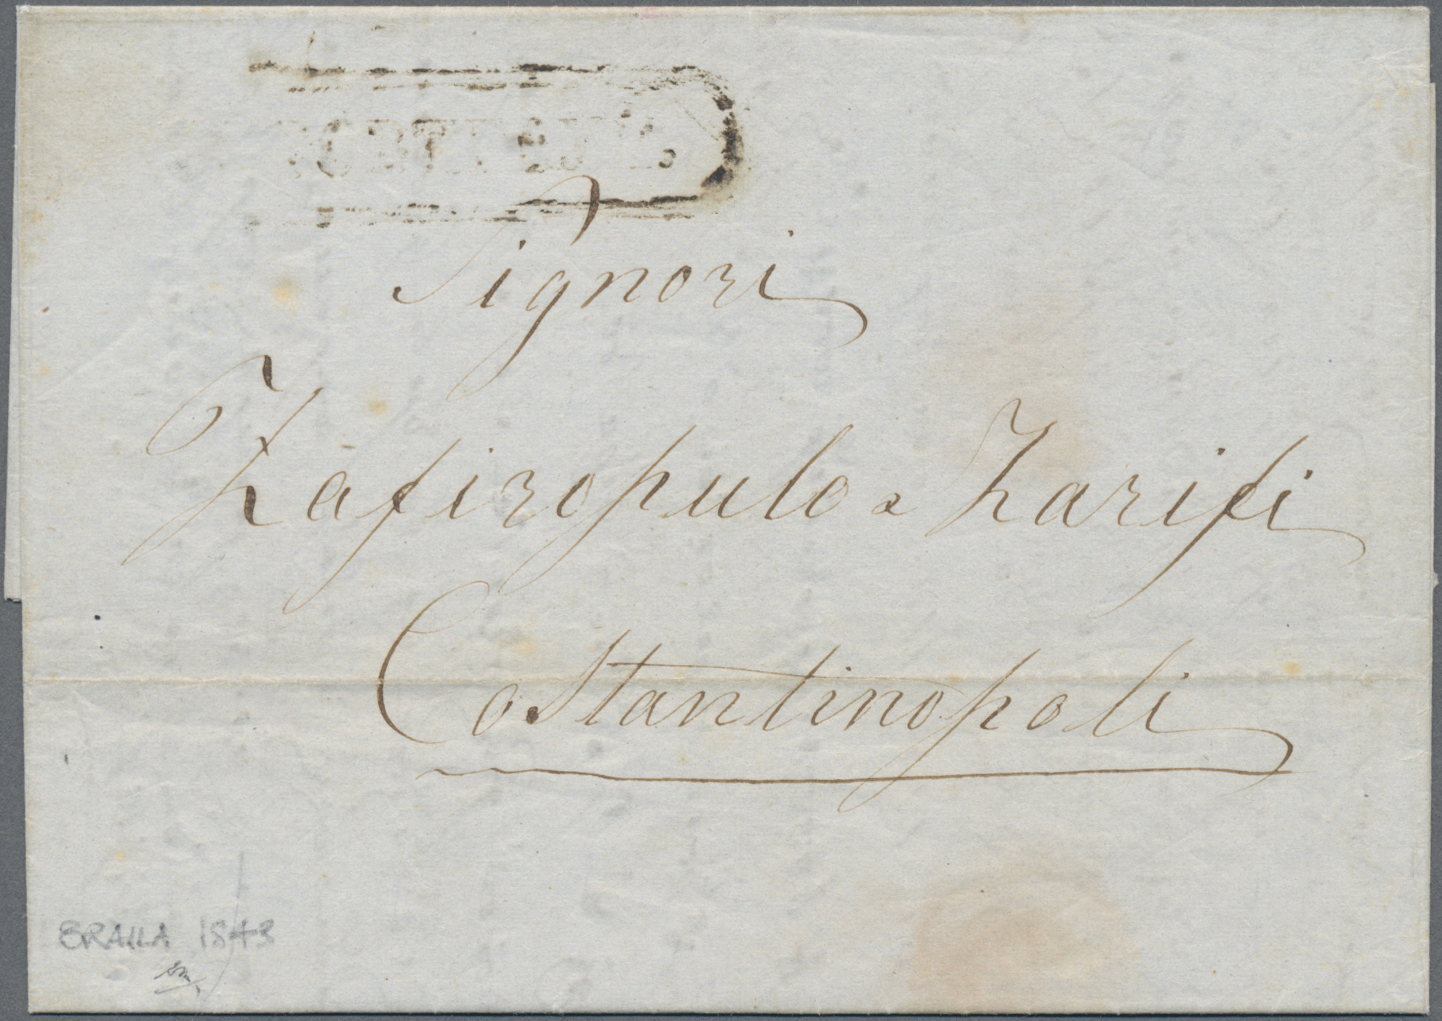 Signori
Zafiropulo e Zarifi
Costantinopoli
BRAILA 1843